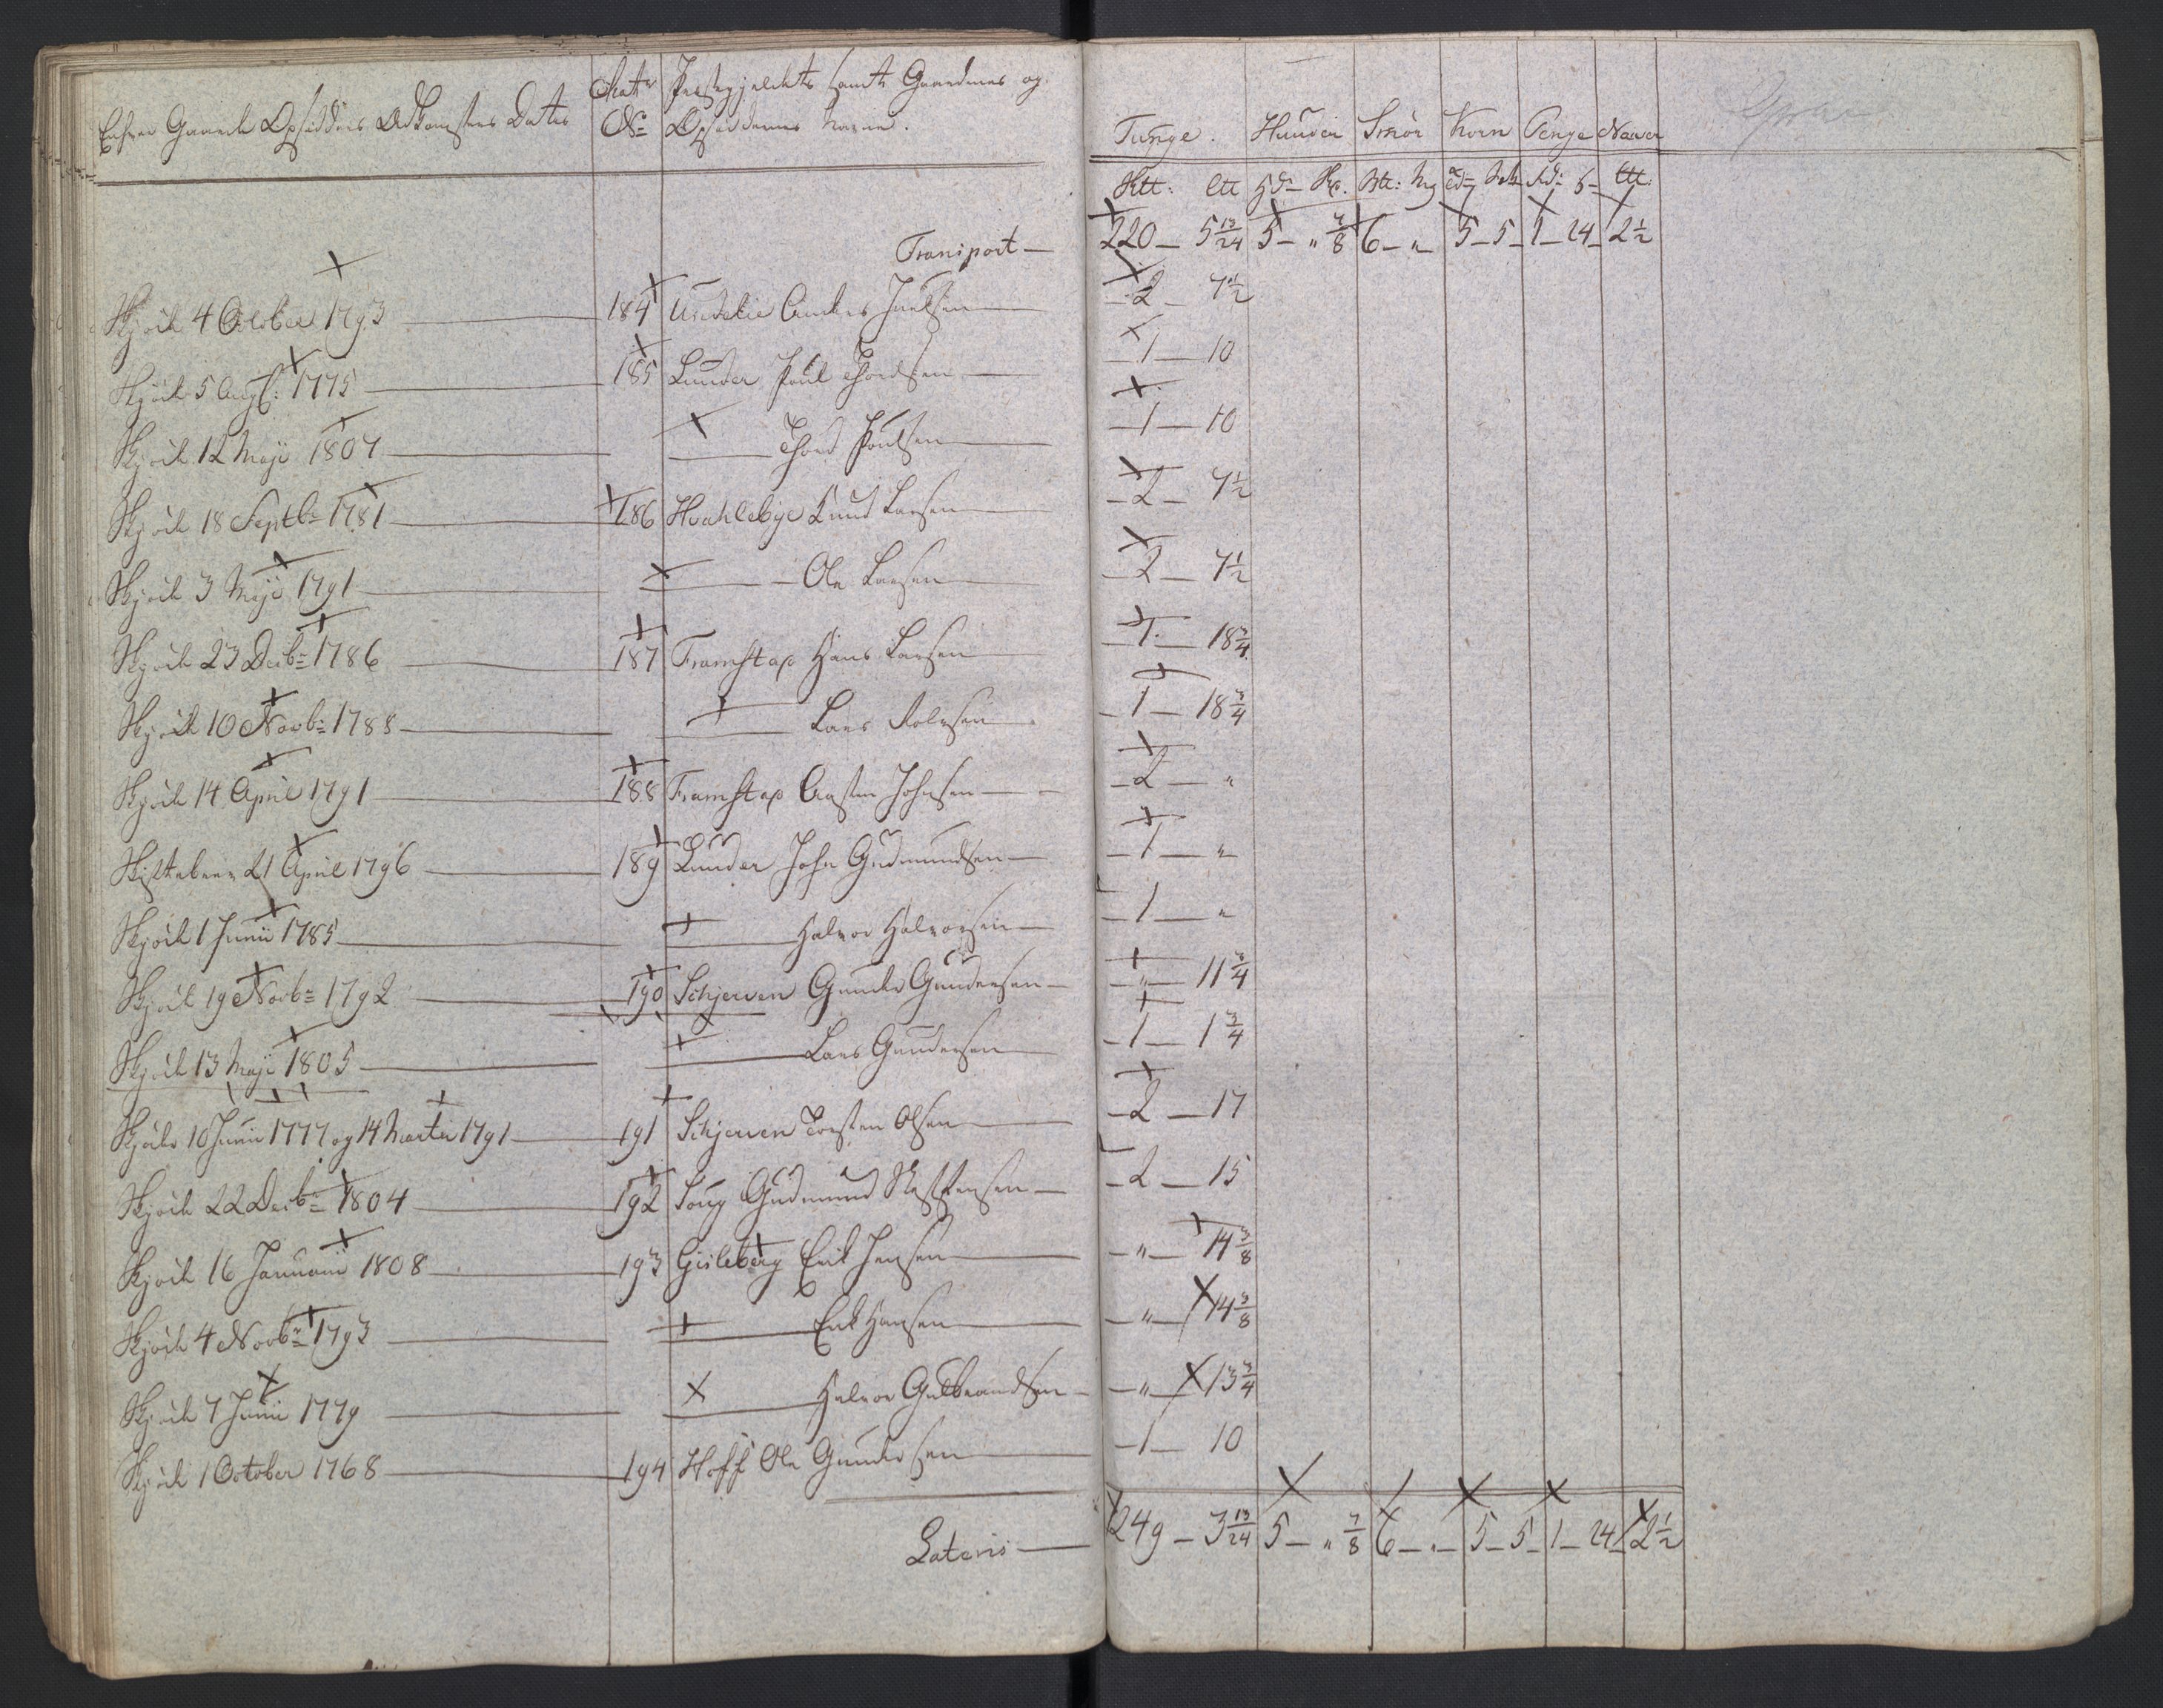 Enhver Gaards Opsidders Adkomsters Datis | Matr | Præstegjeldets samt Gaardenes og
No | Opsiddernes Navne.
Tunge. | Huuder | Smör | Korn | Penge | Næver
Transport — 220 — 5 13/24 | 5 — " 7/8 | 6 — " | 5 — 5 | 1 — 24 | 2 1/2
Skjöde 4 October 1793 — 184 Anders — 2 — 7 1/2
Skjöde 5 Aug: 1775 — 185 Lunder Poul Thordsen — 1 — 10
Skjöde 12 Maji 1807 — Thord Poulsen — 1 — 10
Skjöde 18 Septbr 1781 — 186 Hvahlebye Knud Larsen — 2 — 7 1/2
Skjöde 3 Maji 1791 — Ole Larsen — 2 — 7 1/2
Skjöde 23 Decbr 1786 — 187 Framstap Hans Larsen — 1 — 18 3/4
Skjöde 10 Novbr 1788 — Lars Rolvsen — 1 — 18 3/4
Skjöde 14 April 1791 — 188 Framstap Aasten Johnsen — 2 — "
Skiftebrev 21 April 1796 — 189 Lunder John Gudmundsen — 1 — "
Skjöde 1 Junii 1785 — Halvor Halvorsen — 1 — "
Skjöde 19 Novbr 1792 — 190 Schjerven Gunder Gundersen — " — 11 3/4
Skjöde 13 Maji 1805 — Lars Gundersen — 1 — 1 3/4
Skjöde 10 Junii 1777 og 14 Martii 1791 — 191 Schjerven Torsten Olsen — 2 — 17
Skjöde 22 Decbr 1804 — 192 Soug Gudmund — 2 — 15
Skjöde 16 Januarii 1808 — 193 Gisleberg Erik Jensen — " — 14 3/8
Skjöde 4 Novbr 1793 — Erik Hansen — " — 14 3/8
Skjöde 7 Junii 1779 — Halvor Gulbrandsen — " — 13 3/4
Skjöde 1 October 1768 — 194 Hoff Ole Gundersen — 1 — 10
Lateris — 249 — 3 13/24 | 5 — " 7/8 | 6 — " | 5 — 5 | 1 — 24 | 2 1/2